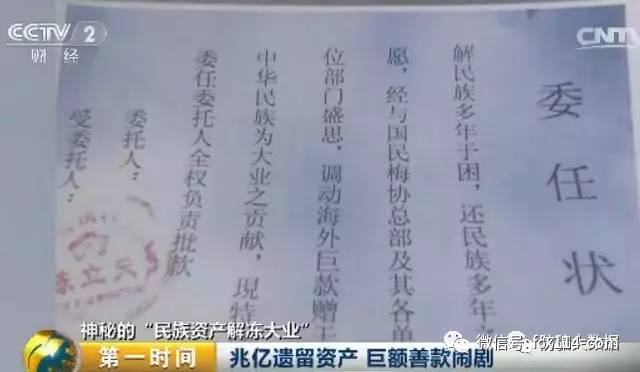 CCTV 2
财经
CNTV
委任状
解民族多年于困，还民族多年
愿，经与国民梅协总部及其各单
位部门盛思，调动海外巨款赠于
中华民族为大业之贡献，現特
委任委托人全权负责批款
委托人：
受委托人：
神秘的“民族资产解冻大业”
第一时间
兆亿遗留资产 巨额善款闹剧
微信号: